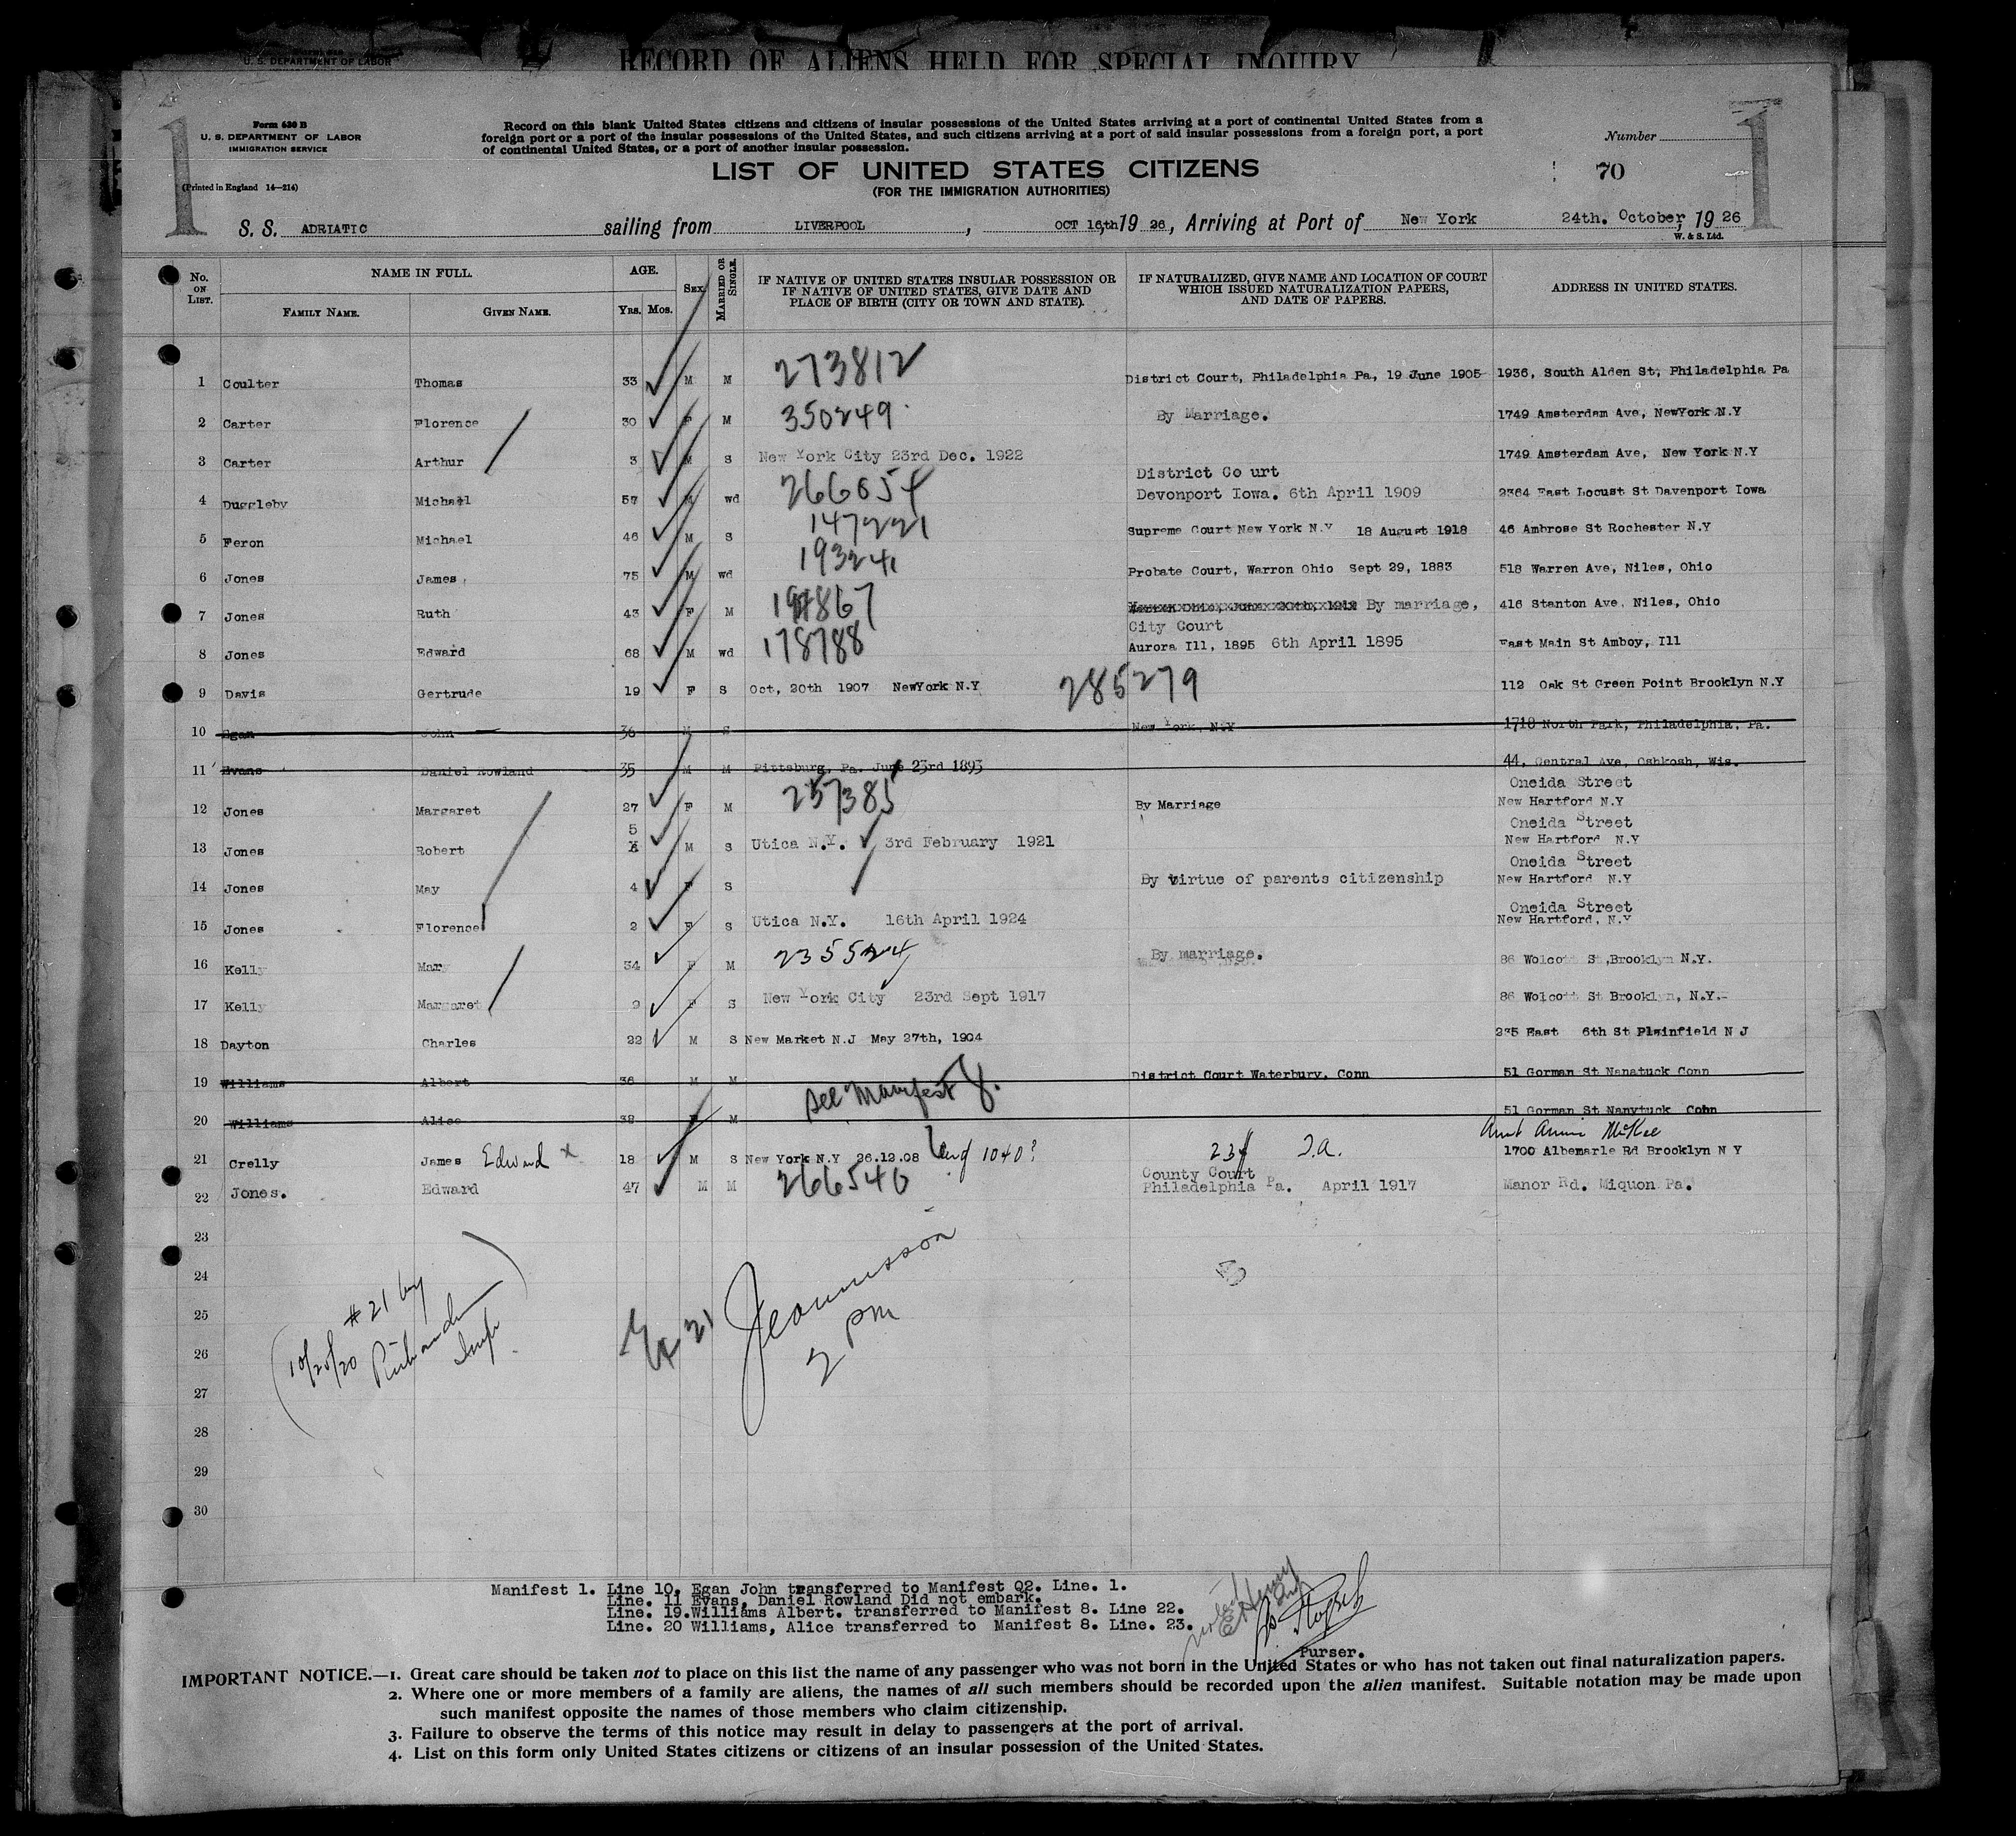 U. S. DEPARTMENT OF LABOR
RECORD OF ALIENS HELD FOR SPECIAL INQUIRY
1
1
Form 630 B
U. S. DEPARTMENT OF LABOR
IMMIGRATION SERVICE
(Printed in England 14—214)
Record on this blank United States citizens and citizens of insular possessions of the United States arriving at a port of continental United States from a
foreign port or a port of the insular possessions of the United States, and such citizens arriving at a port of said insular possessions from a foreign port, a port
of continental United States, or a port of another insular possession.
Number
LIST OF UNITED STATES CITIZENS
(FOR THE IMMIGRATION AUTHORITIES)
70
S. S. ADRIATIC sailing from LIVERPOOL, OCT 16th, 1926, Arriving at Port of New York 24th. October, 1926
W. & S. Ltd.
No. ON LIST. NAME IN FULL. AGE. SEX. MARRIED OR SINGLE. IF NATIVE OF UNITED STATES INSULAR POSSESSION OR IF NATIVE OF UNITED STATES, GIVE DATE AND PLACE OF BIRTH (CITY OR TOWN AND STATE). IF NATURALIZED, GIVE NAME AND LOCATION OF COURT WHICH ISSUED NATURALIZATION PAPERS, AND DATE OF PAPERS. ADDRESS IN UNITED STATES.
FAMILY NAME. GIVEN NAME. YRS. MOS.
1 Coulter Thomas 33 M M 273812 District Court, Philadelphia Pa, 19 June 1905 1936, South Alden St, Philadelphia Pa
2 Carter Florence 30 F M 350249 By Marriage. 1749 Amsterdam Ave, NewYork N.Y
3 Carter Arthur 3 M S New York City 23rd Dec. 1922 1749 Amsterdam Ave, New York N.Y
District Co urt
4 Duggleby Michael 57 M wd 266054 Devonport Iowa. 6th April 1909 2364 East Locust St Davenport Iowa
5 Feron Michael 46 M S 147221 Supreme Court New York N.Y 18 August 1918 46 Ambrose St Rochester N.Y
6 Jones James 75 M wd 193241 Probate Court, Warron Ohio Sept 29, 1883 518 Warren Ave, Niles, Ohio
7 Jones Ruth 43 F M 194867 By marriage, 416 Stanton Ave, Niles, Ohio
City Court
8 Jones Edward 68 M wd 178788 Aurora Ill, 1895 6th April 1895 East Main St Amboy, Ill
9 Davis Gertrude 19 F S Oct, 20th 1907 NewYork N.Y 285279 112 Oak St Green Point Brooklyn N.Y
10 Egan John 36 M S New York, N.Y 1718 North Park, Philadelphia, Pa.
11 Evans Daniel Rowland 35 M M Pittsburg, Pa. June 23rd 1893 44, Central Ave, Oshkosh, Wis.
Oneida Street
12 Jones Margaret 27 F M 257385 By Marriage New Hartford N.Y
5 Oneida Street
13 Jones Robert M S Utica N.Y. 3rd February 1921 New Hartford N.Y
Oneida Street
14 Jones May 4 F S By virtue of parents citizenship New Hartford N.Y
Oneida Street
15 Jones Florence 2 F S Utica N.Y. 16th April 1924 New Hartford, N.Y
16 Kelly Mary 34 F M 235524 By marriage. 86 Wolcott St, Brooklyn N.Y.
17 Kelly Margaret 9 F S New York City 23rd Sept 1917 86 Wolcott St Brooklyn, N.Y.
18 Dayton Charles 22 M S New Market N.J May 27th, 1904 235 East 6th St Plainfield N J
19 Williams Albert 36 M M District Court Waterbury, Conn 51 Gorman St Nanatuck Conn
see Manifest 8.
20 Williams Alice 38 F M 51 Gorman St Nanytuck Conn
Aunt Annie McKee
21 Crelly James Edward x 18 M S New York N.Y 26.12.08 1040? 1700 Albemarle Rd Brooklyn N Y
County Court
22 Jones. Edward 47 M M 266546 Philadelphia Pa. April 1917 Manor Rd. Miquon Pa.
23
24
25
26
27
28
29
30
# 21 by
2 pm
Manifest 1. Line 10, Egan John transferred to Manifest Q2. Line. 1.
Line. 11 Evans, Daniel Rowland Did not embark.
Line. 19.Williams Albert. transferred to Manifest 8. Line 22.
Line. 20 Williams, Alice transferred to Manifest 8. Line. 23.
Purser.
IMPORTANT NOTICE.—1. Great care should be taken not to place on this list the name of any passenger who was not born in the United States or who has not taken out final naturalization papers.
2. Where one or more members of a family are aliens, the names of all such members should be recorded upon the alien manifest. Suitable notation may be made upon
such manifest opposite the names of those members who claim citizenship.
3. Failure to observe the terms of this notice may result in delay to passengers at the port of arrival.
4. List on this form only United States citizens or citizens of an insular possession of the United States.